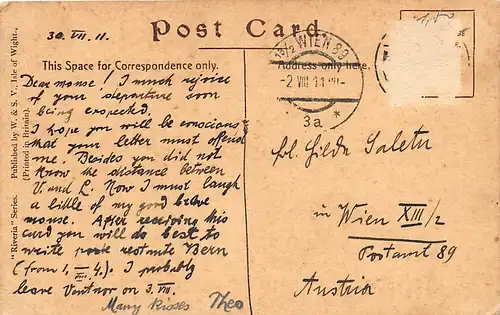 Post Card.
30. VII. 11.
This Space for Correspondence only.
Address only here.
"Riveria" Series. Published by W. & S. V., Isle of Wight.
[Printed in Britain].
1/2 WIEN 89
-2 VIII 11
3a *
Dear mouse! I much rejoice
of your departure soon
being expected.
I hope you will be conscious
that your letter must offend
me. Besides you did not
know the distance between
V and L. Now I must laugh
a little of my good brave
mouse. After receiving this
card you will do best to
write poste restante Bern
(from 1.-4.). I probably
leave Ventnor on 3. VIII.
Many Kisses Theo
frl. Hilda
in Wien XIII/2
Postamt 89
Austria